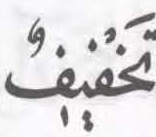 تَخْفِيفٌ